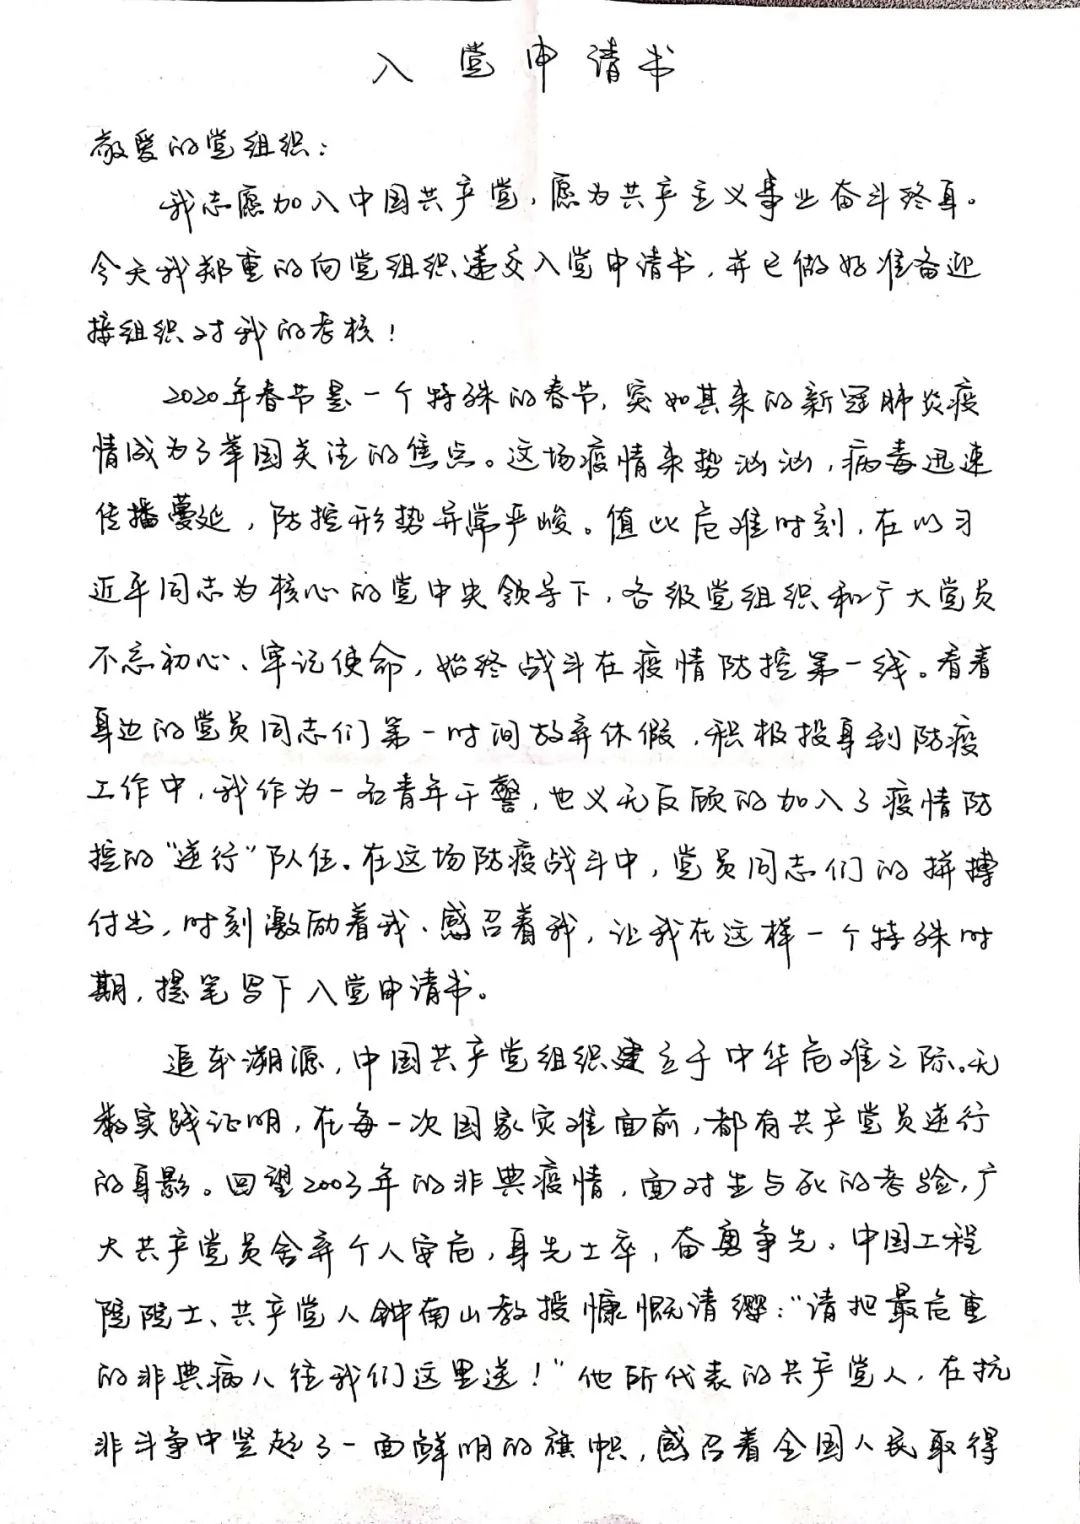 入党申请书
敬爱的党组织：
我志愿加入中国共产党，愿为共产主义事业奋斗终身。
今天我郑重的向党组织递交入党申请书，并已做好准备迎
接组织对我的考核！
2020年春节是一个特殊的春节，突如其来的新冠肺炎疫
情成为了举国关注的焦点。这场疫情来势汹汹，病毒迅速
传播蔓延，防控形势异常严峻。值此危难时刻，在以习
近平同志为核心的党中央领导下，各级党组织和广大党员
不忘初心、牢记使命，始终战斗在疫情防控第一线。看着
身边的党员同志们第一时间放弃休假，积极投身到防疫
工作中，我作为一名青年干警，也义无反顾的加入了疫情防
控的“逆行”队伍。在这场防疫战斗中，党员同志们的拼搏
付出，时刻激励着我、感召着我，让我在这样一个特殊时
期，提笔写下入党申请书。
追本溯源，中国共产党组织建立于中华危难之际。无
数实践证明，在每一次国家灾难面前，都有共产党员逆行
的身影。回望2003年的非典疫情，面对生与死的考验，广
大共产党员舍弃个人安危，身先士卒，奋勇争先。中国工程
院院士、共产党人钟南山教授慷慨请缨：“请把最危重
的非典病人往我们这里送！”他所代表的共产党人，在抗
非斗争中竖起了一面鲜明的旗帜，感召着全国人民取得